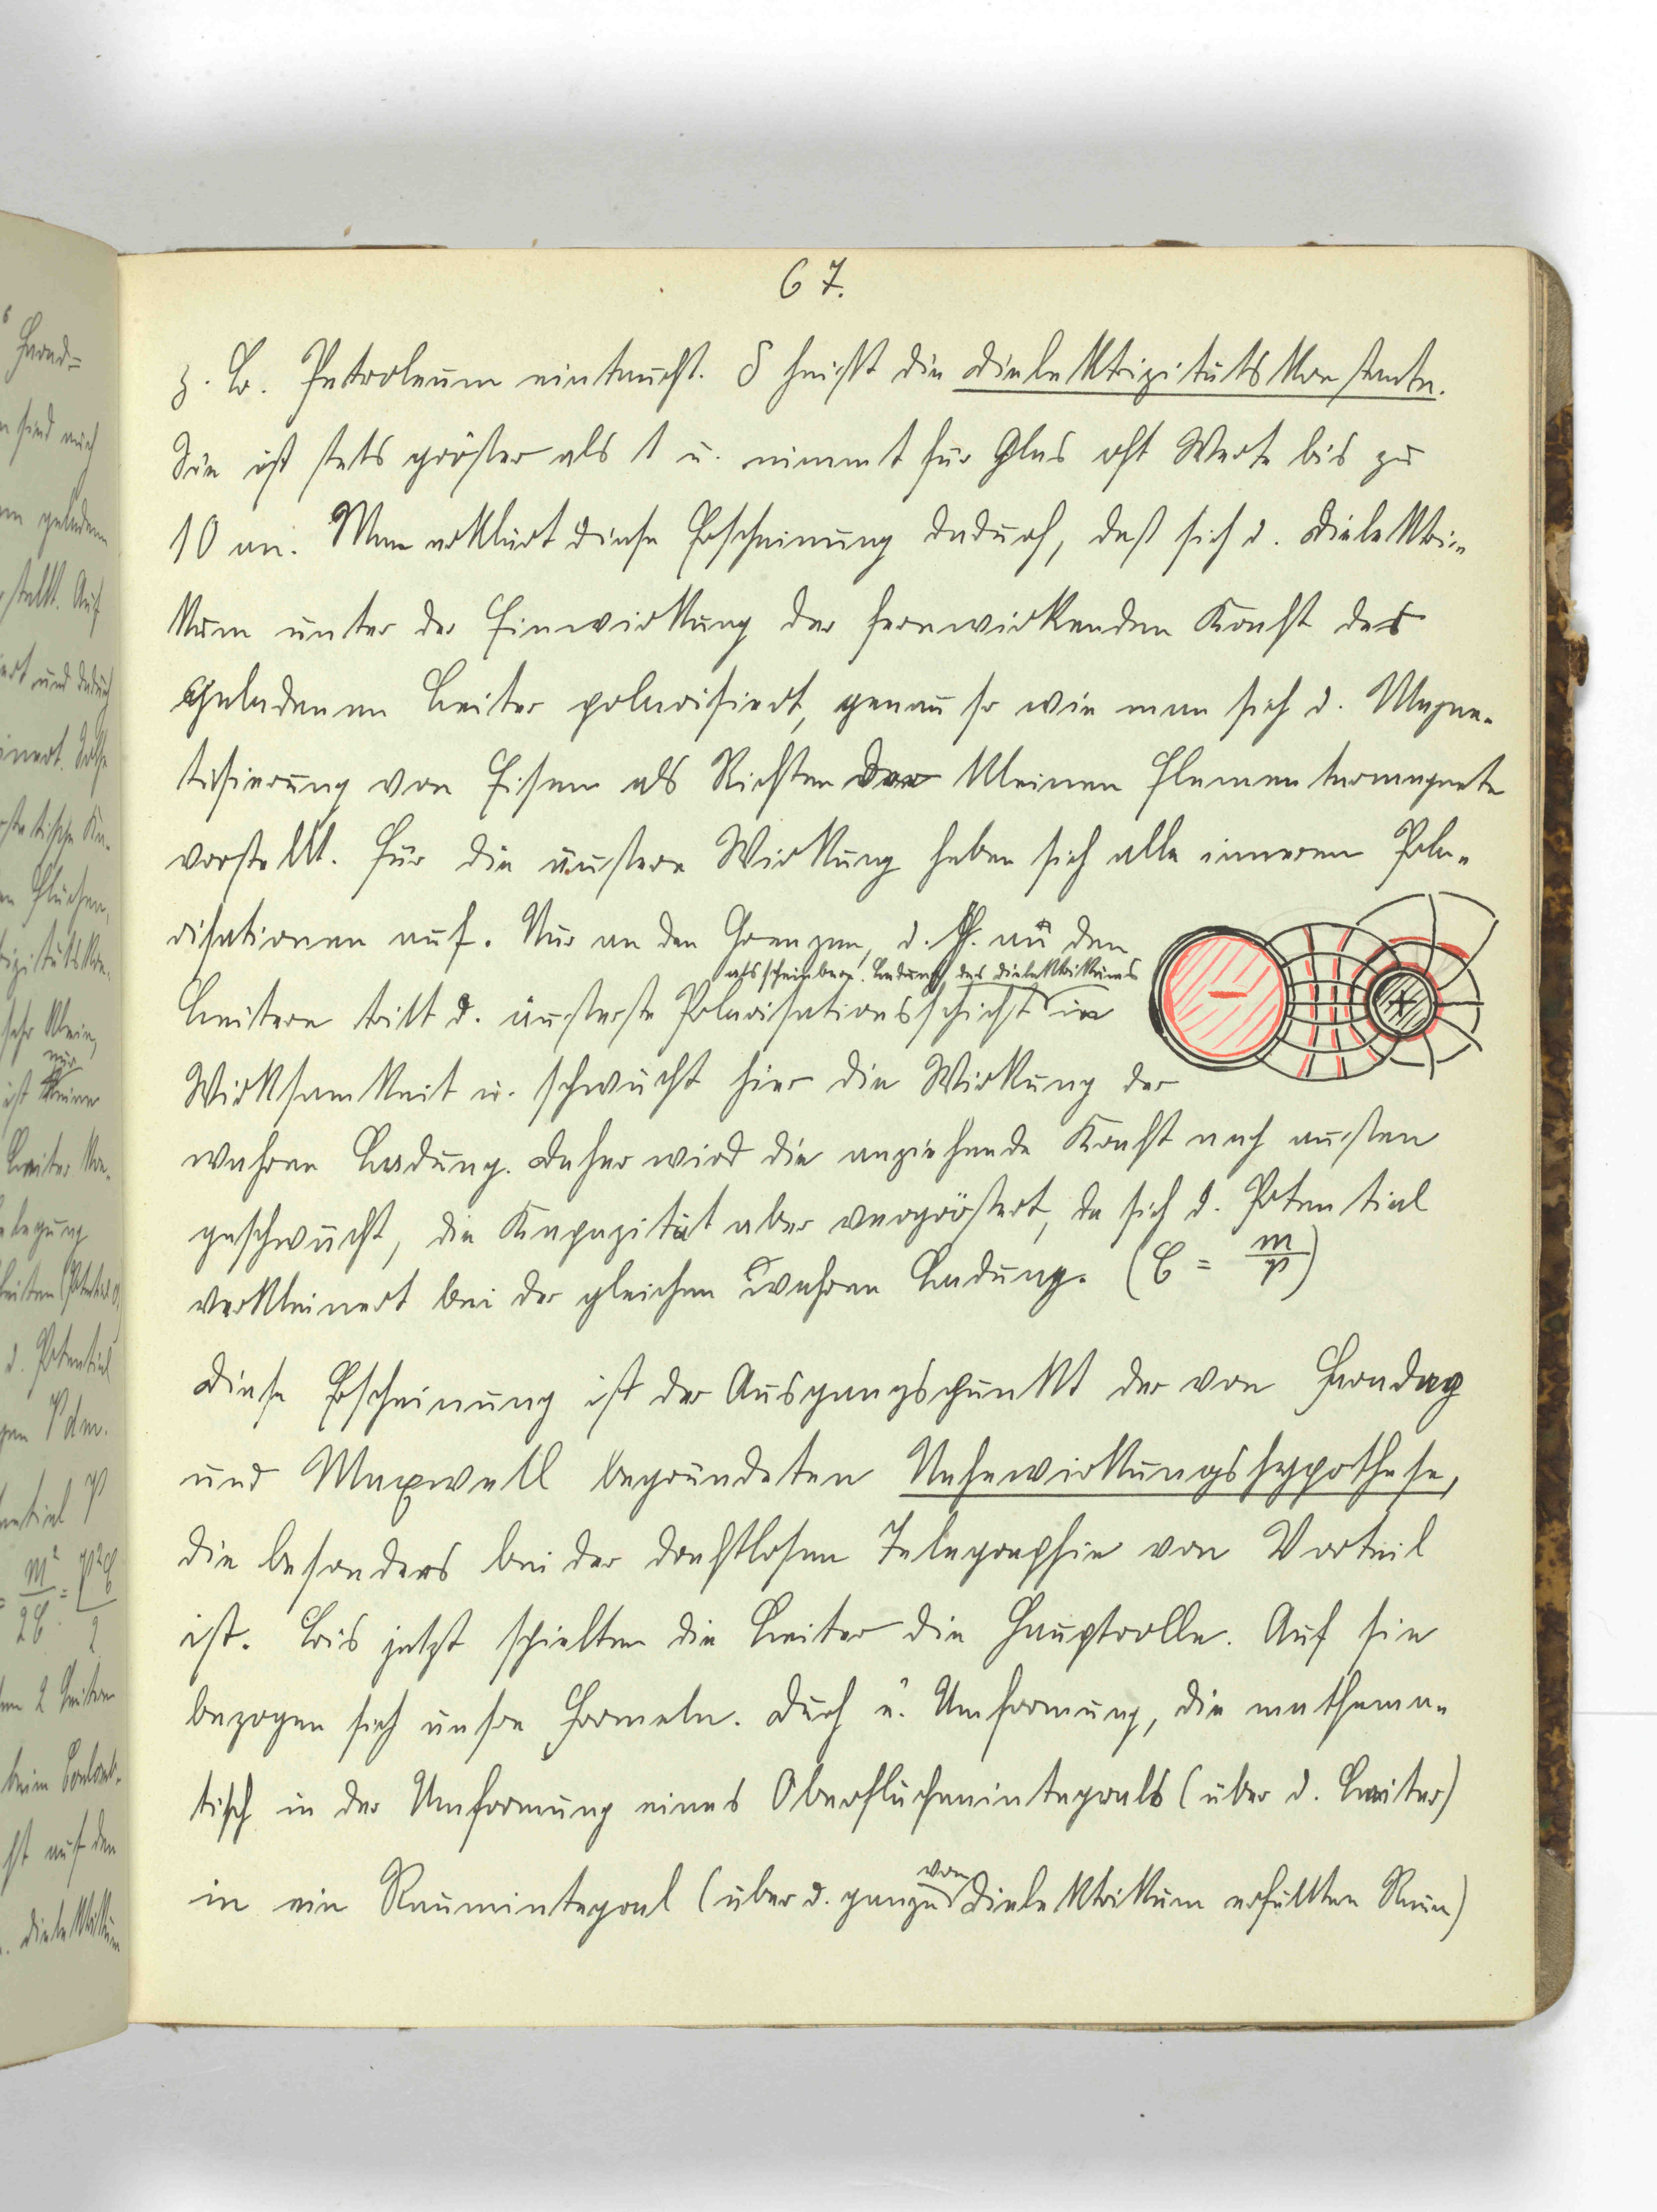 67.
z. B. Petroleum eintaucht. δ heißt die Dielektrizitätskonstante.
Sie ist stets größer als 1 u. nimmt für Glas oft Werte bis zu
10 an. Man erklärt diese Erscheinung dadurch, daß sich d. Dielektri-
kum unter der Einwirkung der fernwirkenden Kraft des
geladenen Leiter polarisiert, genau so wie man sich d. Magne-
tisierung von Eisen als Richten der kleinen Elementarmagnete
vorstellt. Für die äußere Wirkung heben sich alle inneren Pola-
risationen auf. Nur an den Grenzen, d. h. an den
als scheinbare Ladung des Dielektrikums
Leitern tritt d. äußerste Polarisationsschicht in
Wirksamkeit u. schwächt hier die Wirkung der
wahren Ladung. Daher wird die anziehende Kraft nach außen
geschwächt, die Kapazität aber vergrößert, da sich d. Potential
verkleinert bei der gleichen wahren Ladung. (C = m/P)
Diese Erscheinung ist der Ausgangspunkt der von Faraday
und Maxwell begründeten Nahewirkungshypothese,
die besonders bei der drahtlosen Telegraphie von Vorteil
ist. Bis jetzt spielten die Leiter die Hauptrolle. Auf sie
bezogen sich unsre Formeln. Durch e. Umformung, die mathema-
tisch in der Umformung eines Oberflächenintegrals (über d. Leiter)
in ein Raumintegral (über d. ganzen von Dielektrikum erfüllten Raum)